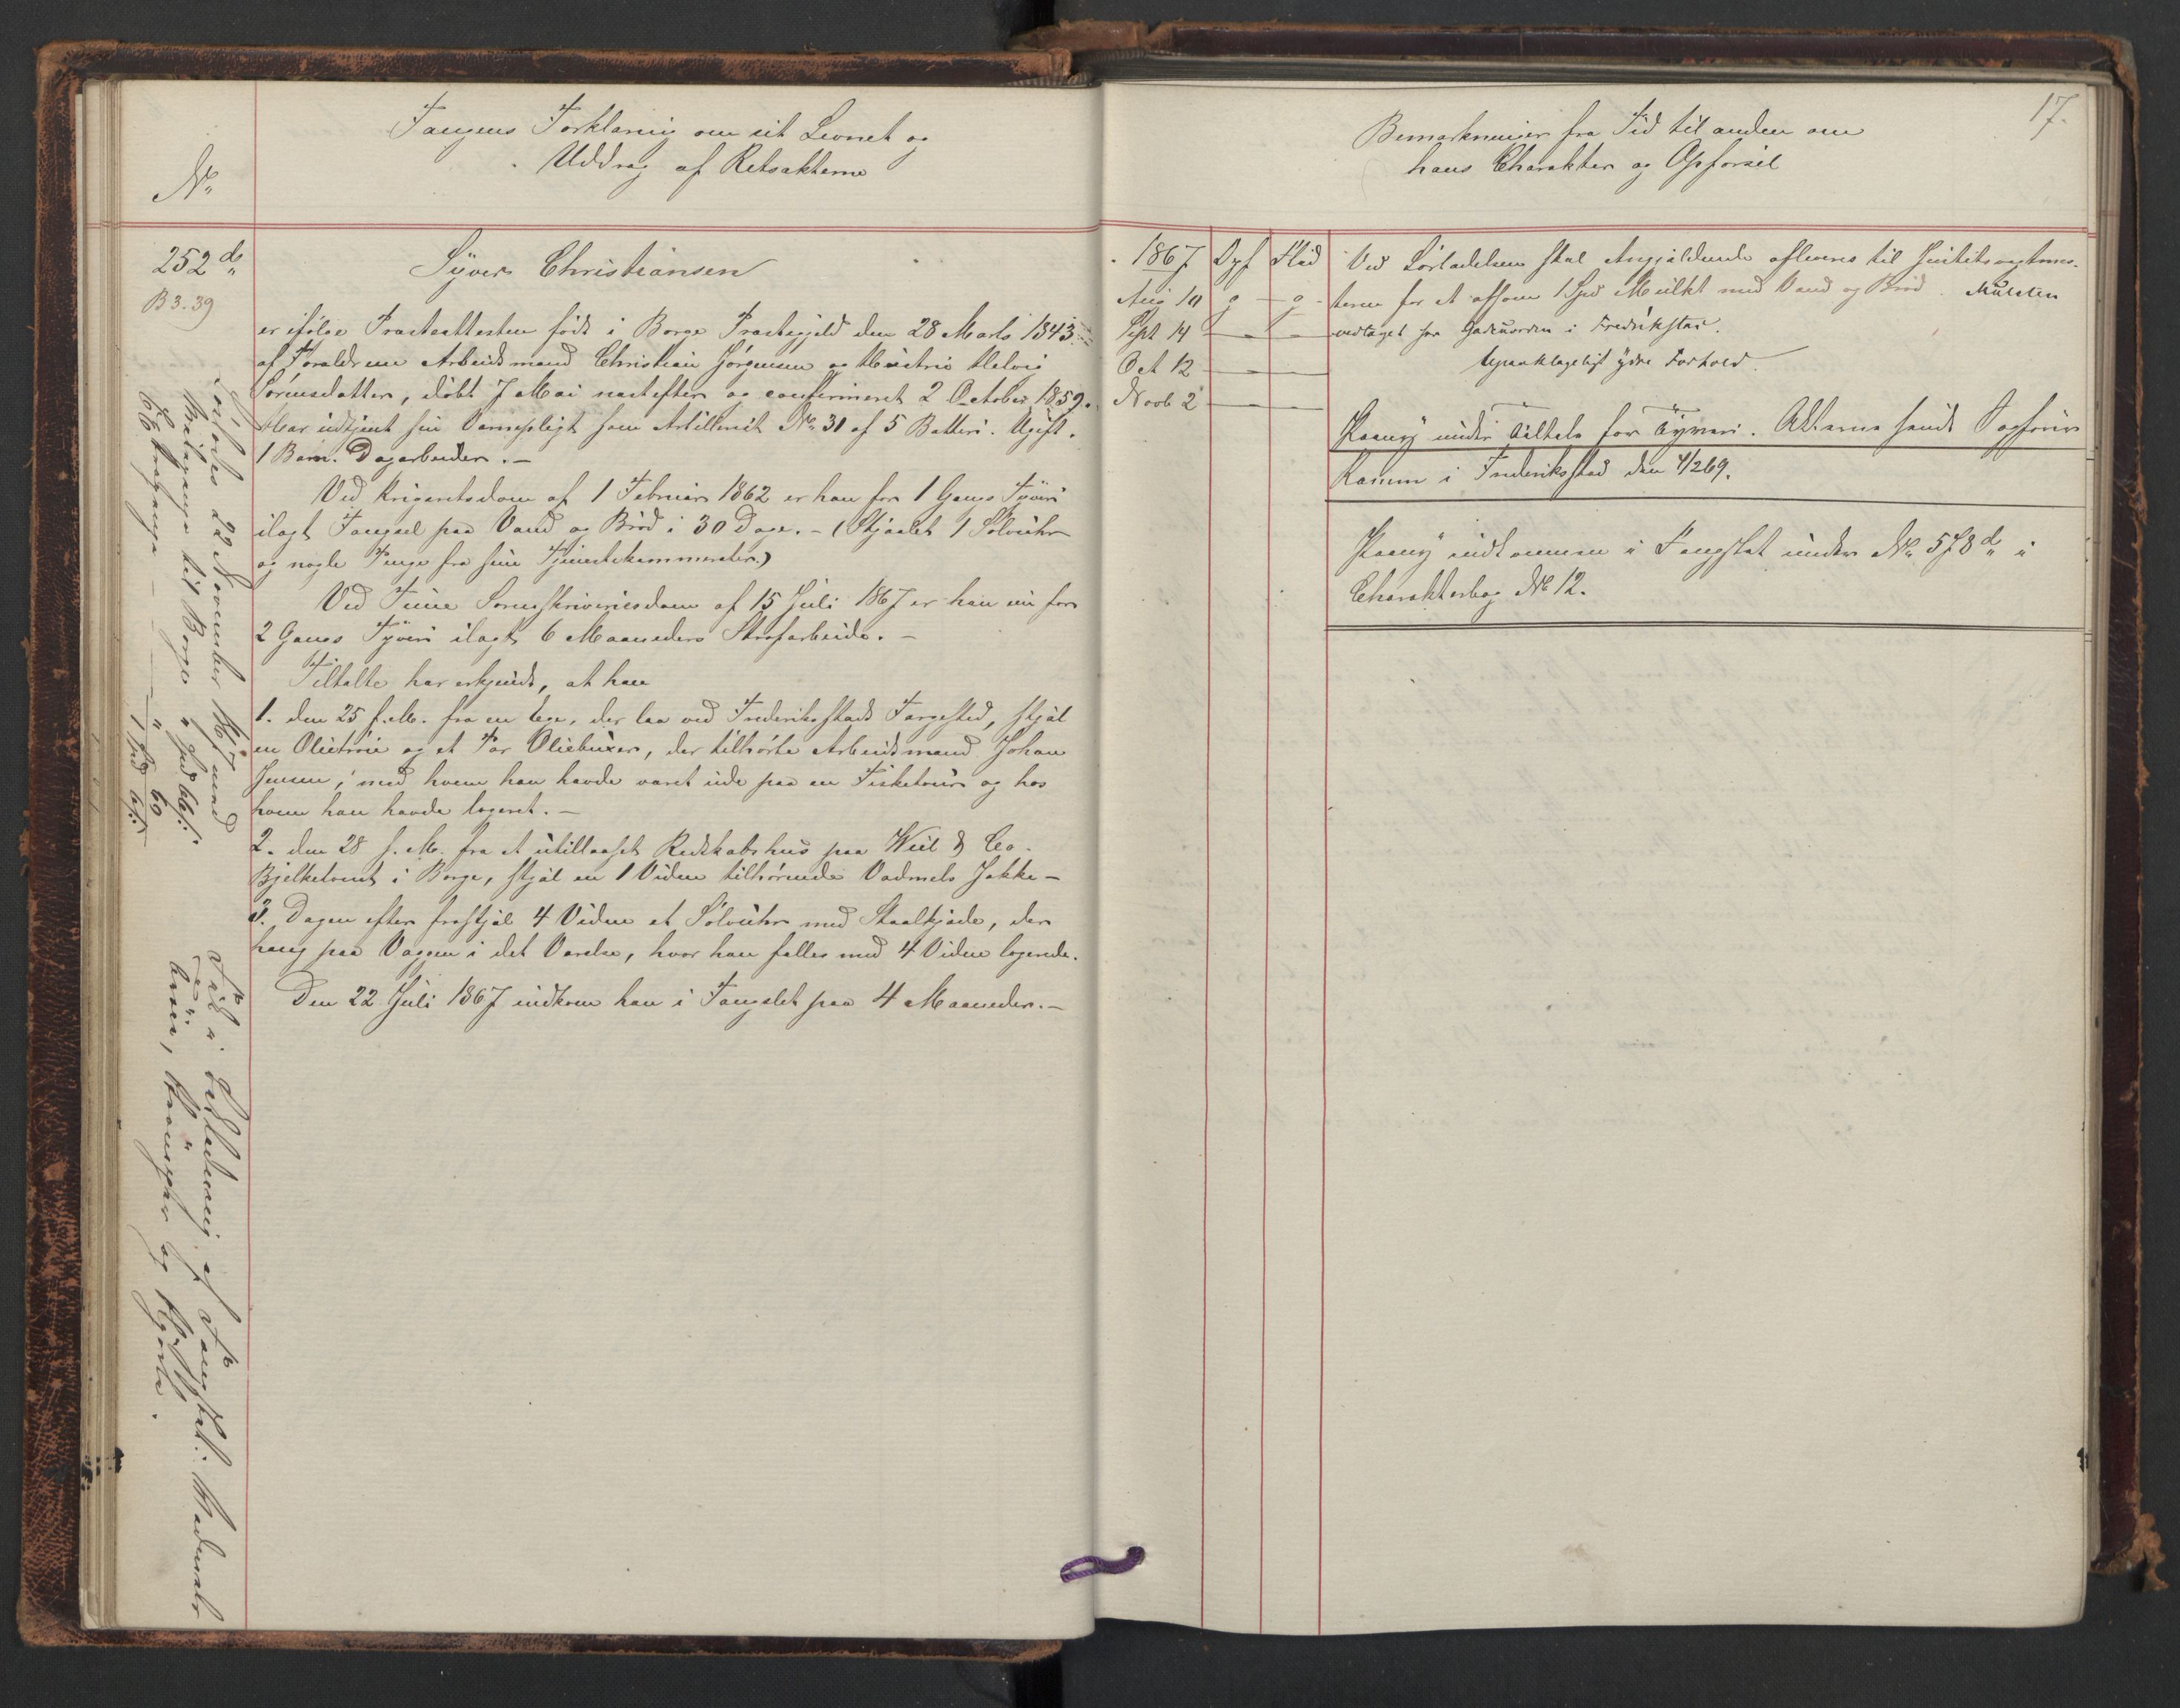 Fangens Forklaring om sit Levnet og
Uddrag af Retsakterne
No
252 d
B 3. 39
Syver Christiansen
er ifølge Præsteattesten født i Borge Præstegjeld den 28 Marts 1843
af Forældrene Arbeidsmand Christian Jørgensen og Helvig
Sørensdatter, døbt 7 Mai næstefter og confirmeret 2 October 1859.
Har udtjent sin Værnepligt som Artillerist No 31 af 5 Batteri. Ugift.
1 Barn. Dagarbeider. -
Ved Krigsretsdom af 1 Februar 1862 er han for 1 Gangs Tyveri
ilagt Fængsel paa Vand og Brød i 30 Dage. - (Stjaalet 1 Sølvuhr
og nogle Penge fra sine Tjenestekammerater.)
Ved Tune Sorenskriveriesdom af 15 Juli 1867 er han nu for
2 Gangs Tyveri ilagt 6 Maaneders Strafarbeide. -
Tiltalte har erkjendt, at han
1. den 25 f. M. fra en Ege, der laa ved Frederiksstads Færgested, stjal
en Olietrøie og et Par Oliebuxer, der tilhørte Arbeidsmand Johan
Jensen, med hvem han havde været ude paa en Fisketour og hos
hvem han havde logeret. -
2. den 28 f. M. fra et utillaaset Redskabshus paa Wiel & Co.
Bjelketomt i Borge, stjal en 1 Vidne tilhørende Vadmels Jakke -
3. Dagen efter frastjal 4 Vidne et Sølvuhr med Staalkjæde, der
hang paa Væggen i det Værelse, hvor han fælles med 4 Vidne logerede.
Den 22 Juli 1867 indkom han i Fangslet paa 4 Maaneder. -
Løslades 22 November 1867 med
Reisepenge til Borge
60
Fik i Beklædning af Fangslet: Vadmels
trøie, og Skjorte.
17.
Bemærkninger fra Tid til anden om
hans Charakter og Opførsel
1867 Opf Flid
Aug 10 g - g -
Sept 14 — —
Oct 12 — —
Novb 2 — —
Ved Løsladelsen skal Angjældende afleveres til
for at afsone 1 Spd Mulkt med Vand og Brød. Mulkten
vedtaget for Gadeuorden i Fredrikstad.
Upaaklageligt ydre Forhold.
Paany under Tiltale for Tyveri. Akterne sendt Sagfører
i Frederiksstad den 4/2 69.
Paany indkommen i Fangslet under No 578 d i
Charakterbog No 12.